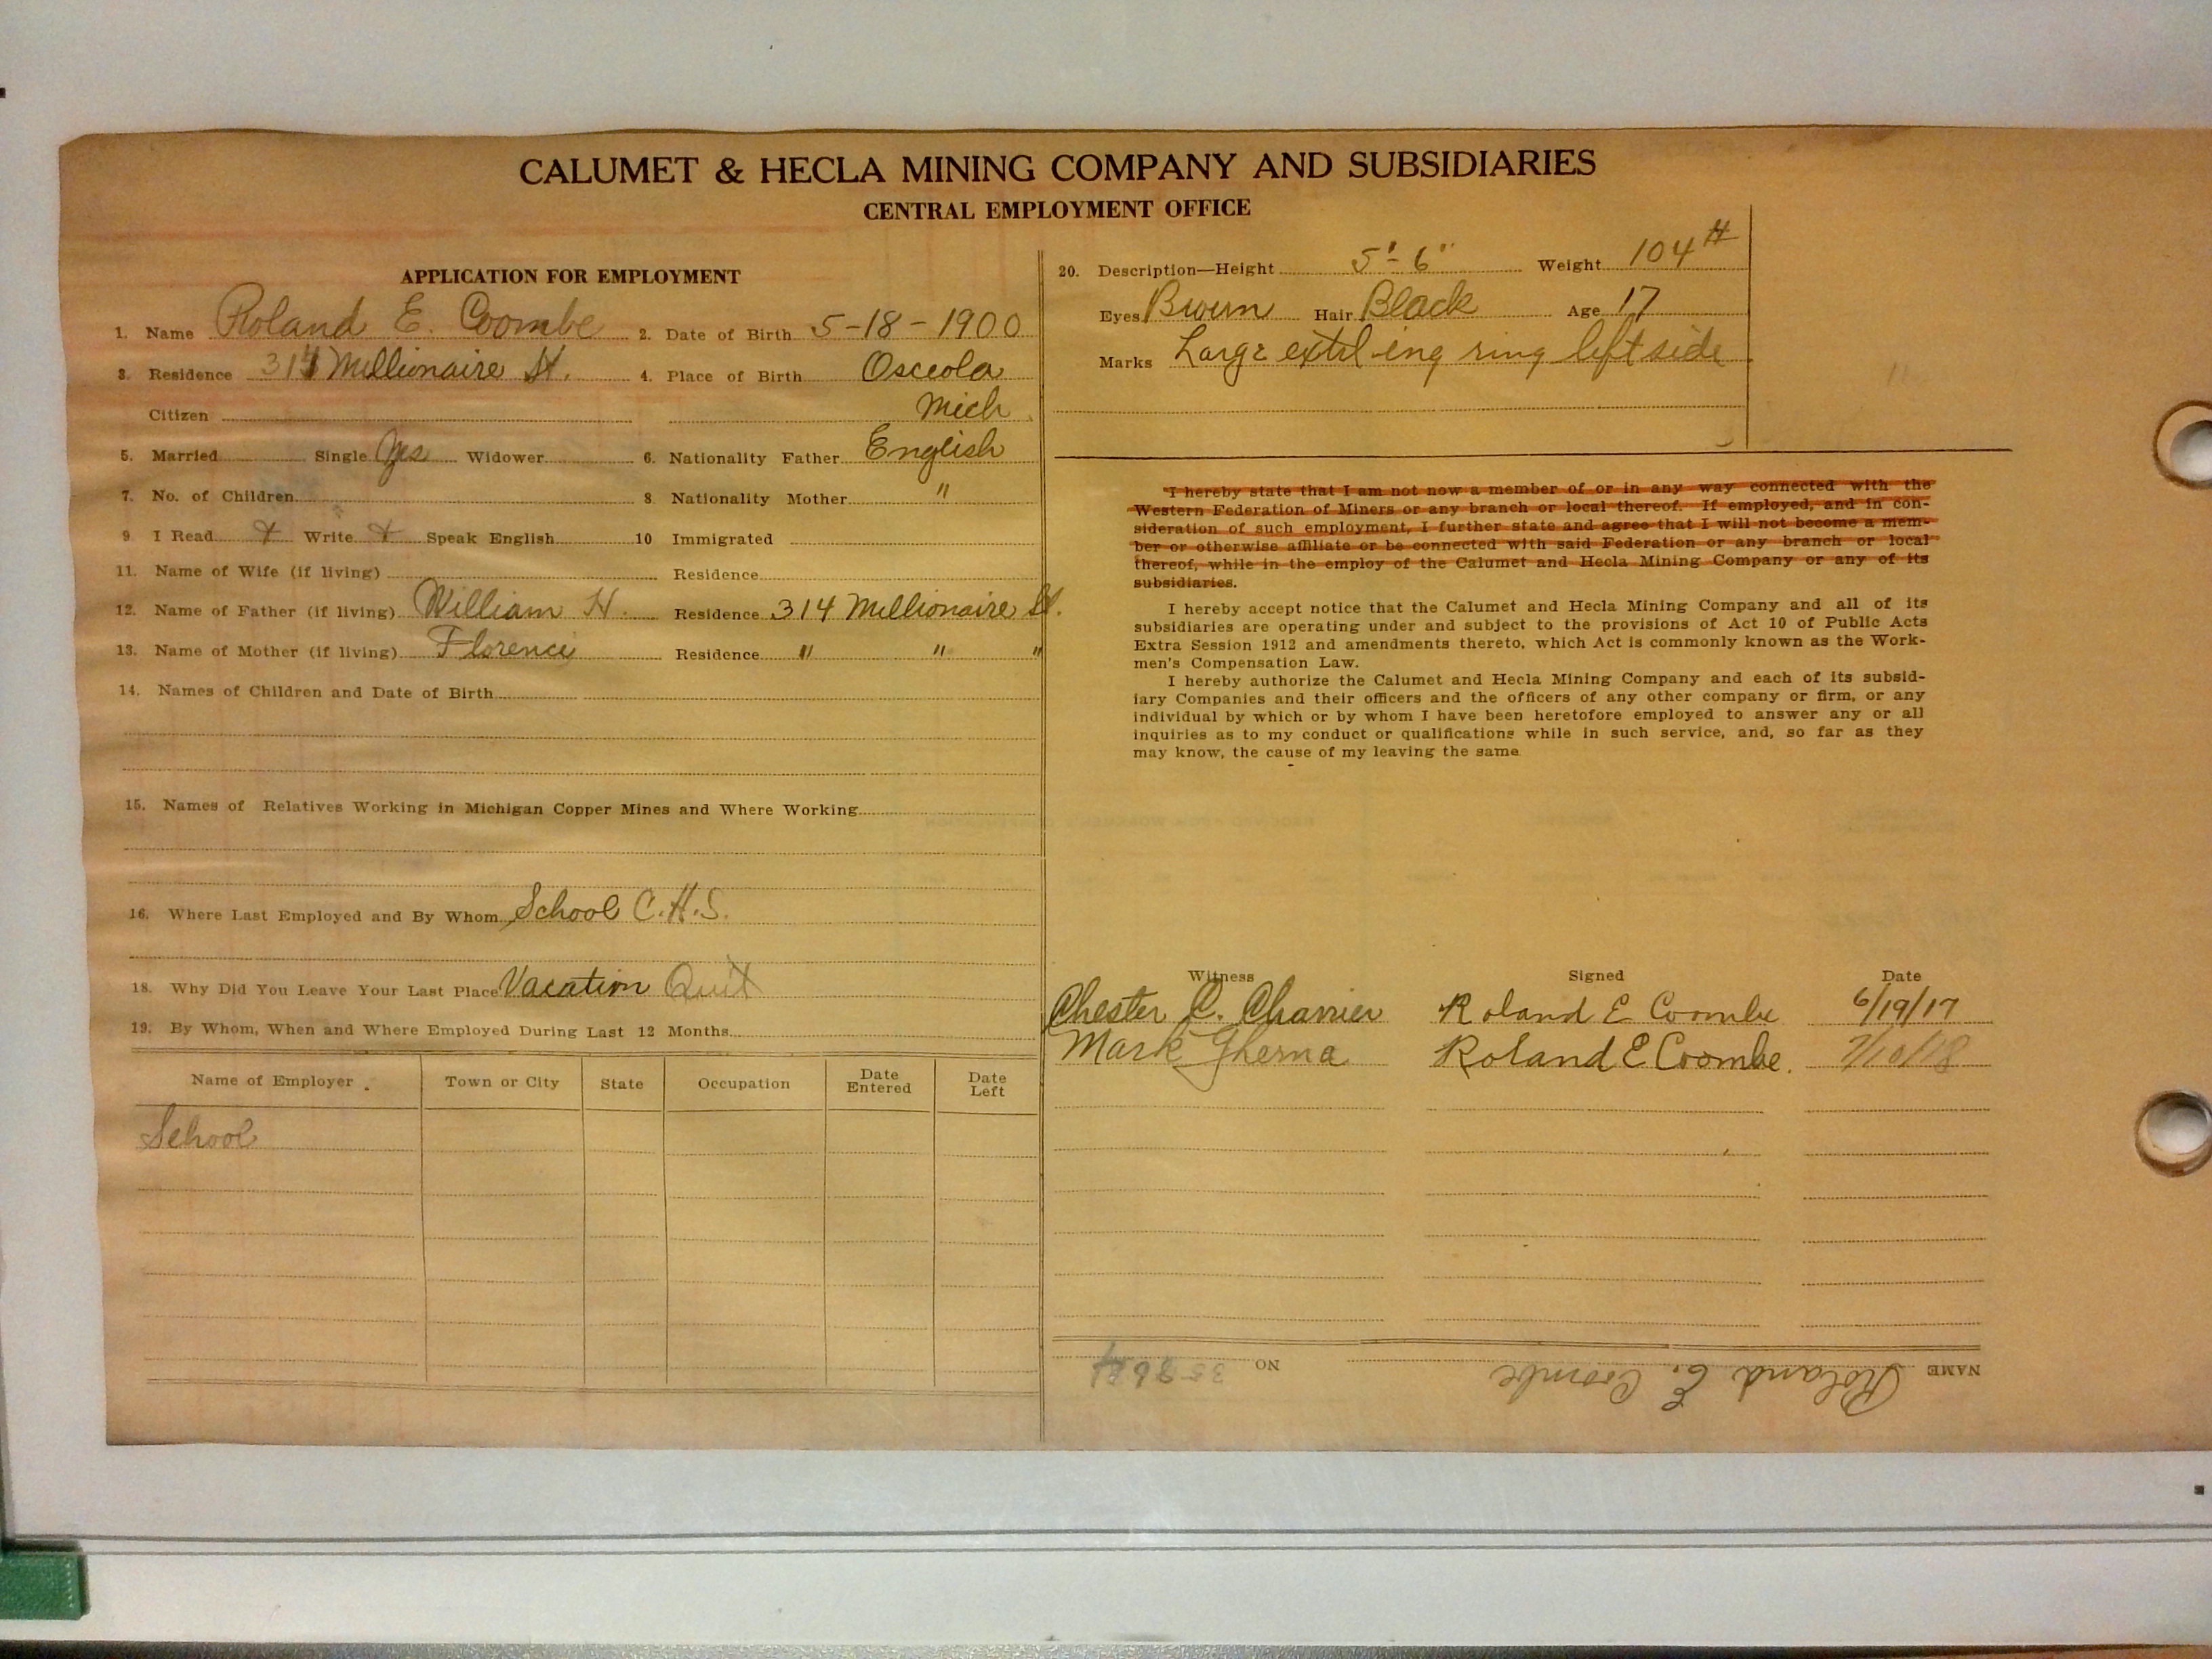 CALUMET & HECLA MINING COMPANY AND SUBSIDIARIES
CENTRAL EMPLOYMENT OFFICE
APPLICATION FOR EMPLOYMENT
1. Name Roland E. Coombe 2. Date of Birth 5-18-1900
3. Residence 314 Millionaire St. 4. Place of Birth Osceola
Citizen Mich
5. Married Single Yes Widower 6. Nationality Father English
7. No. of Children 8. Nationality Mother "
9 I Read + Write + Speak English 10 Immigrated
11. Name of Wife (if living) Residence
12. Name of Father (if living) William H. Residence 314 Millionaire St.
13. Name of Mother (if living) Florence Residence " " "
14. Names of Children and Date of Birth
15. Names of Relatives Working in Michigan Copper Mines and Where Working
16. Where Last Employed and By Whom School C.H.S.
18. Why Did You Leave Your Last Place Vacation Quit
19. By Whom, When and Where Employed During Last 12 Months
Name of Employer Town or City State Occupation Date Entered Date Left
School
20. Description—Height 5'-6" Weight 104#
Eyes Brown Hair Black Age 17
Marks Large ring left side
"I hereby state that I am not now a member of or in any way connected with the
Western Federation of Miners or any branch or local thereof. If employed, and in con-
sideration of such employment, I further state and agree that I will not become a mem-
ber or otherwise affiliate or be connected with said Federation or any branch or local
thereof, while in the employ of the Calumet and Hecla Mining Company or any of its
subsidiaries.
I hereby accept notice that the Calumet and Hecla Mining Company and all of its
subsidiaries are operating under and subject to the provisions of Act 10 of Public Acts
Extra Session 1912 and amendments thereto, which Act is commonly known as the Work-
men's Compensation Law.
I hereby authorize the Calumet and Hecla Mining Company and each of its subsid-
iary Companies and their officers and the officers of any other company or firm, or any
individual by which or by whom I have been heretofore employed to answer any or all
inquiries as to my conduct or qualifications while in such service, and, so far as they
may know, the cause of my leaving the same
Witness Signed Date
Chester C. Charrier Roland E Coombe 6/19/17
Mark Roland E Coombe. 7/10/18
NAME Roland E. Coombe NO